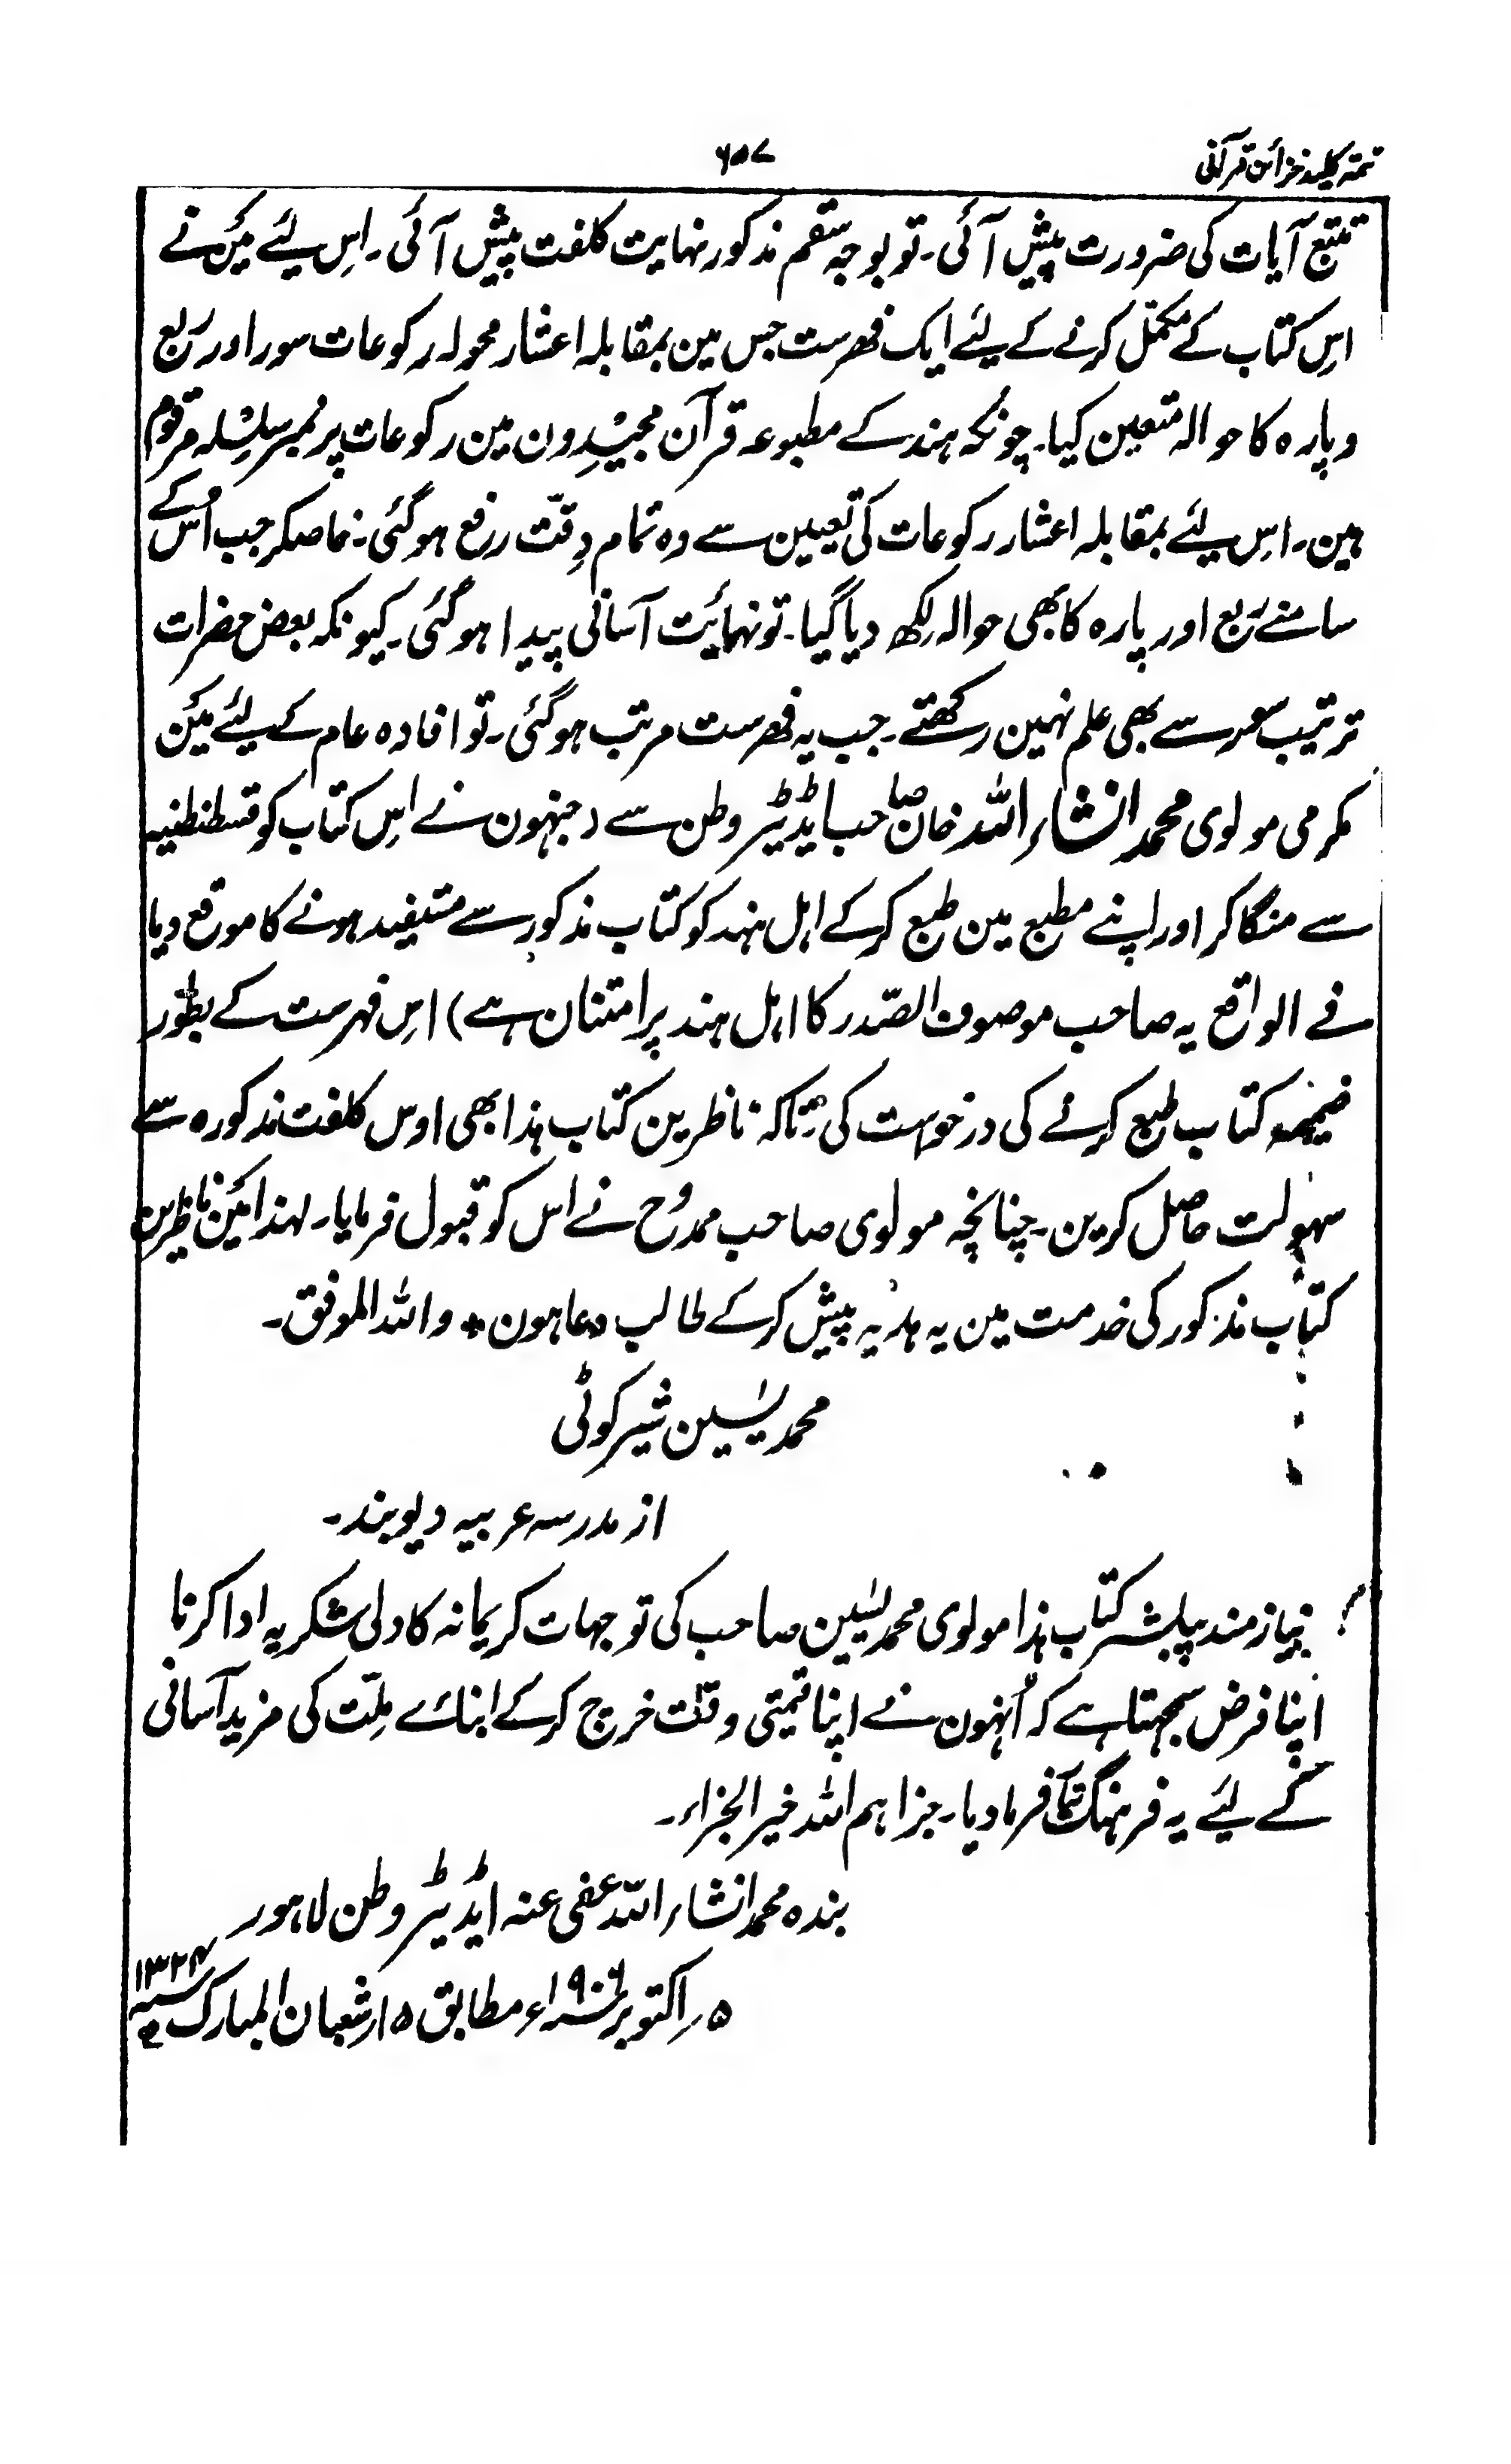 تتمہ کلید خزائن قرآنی
۶۵۷
تتبع آیات کی ضرورت پیش آئی۔ تو بوجہ سقم مذکور نہایت کلفت پیش آئی۔ اِس لیئے مَین نے
اِس کتاب کے مکمّل کرنے کے لیئے ایک فہرست جس مین بمقابلہ اعشار محولہ رکوعات سور اور رَبع
و پارہ کا حوالہ متعین کیا۔ چونکہ ہند کے مطبوعہ قرآن مجیدون مین رکوعات پر نمبر سلسِلہ مرقوم
ہین۔ اِس لیئے بمقابلہ اعشار رکوعات کی تعیین سے وہ تمام دِقّت رفع ہوگئی۔ خاصکر جب اُس کے
سامنے رَبع اور پارہ کا بھی حوالہ لکھ دیا گیا۔ تو نہائیت آسانی پیدا ہوگئی۔ کیونکہ بعض حضرات
ترتیب سور سے بھی علم نہین رکھتے۔ جب یہ فہرست مرتب ہوگئی۔ تو افادہ عام کے لیئے مَین
مکرمی مولوی محمد انشاء اللہ خان صاحب ایڈیٹر وطن سے (جنہون نے اِس کتاب کو قسطنطنیہ
سے منگا کر اور اپنے مطبع مین طبع کر کے اہل ہند کو کتاب مذکور سے مستفید ہونے کا موقع دیا
فے الواقع یہ صاحب موصوف الصّدر کا اہل ہند پر امتنان ہے) اِس فہرست کے بطور
ضمیمہ کتاب طبع کرنے کی درخواست کی۔ تاکہ ناظرین کتاب ہذا بھی اوس کلفت مذکورہ سے
سہولت حاصل کرین۔ چنانچہ مولوی صاحب ممدوُح نے اس کو قبول فرمایا۔ لہذا مَین ناظرین
کتاب مذکور کی خدمت مین یہ ہدیہ پیش کر کے طالب دعا ہون * واللہ الموفق۔
محمد یٰسین شیرکوٹی
از مدرسہ عربیہ دیوبند۔
نیازمند پبلشر کتاب ہذا مولوی محمد یٰسین صاحب کی توجہات کریمانہ کا دلی شکریہ ادا کرنا
اپنا فرض سمجہتا ہے کہ اُنہون نے اپنا قیمتی وقت خرچ کر کے ابنائے مِلّت کی مزید آسانی
کے لیئے یہ فرہنگ فرما دیا۔ جزاہم اللہ خیر الجزاء۔
بندہ محمد انشاء اللہ عفی عنہ ایڈیٹر وطن لاہور
۵؍اکتوبر ۱۹۰۶ء مطابق ۱۵؍شعبان المبارک سنہ ۱۳۲۴ ھ